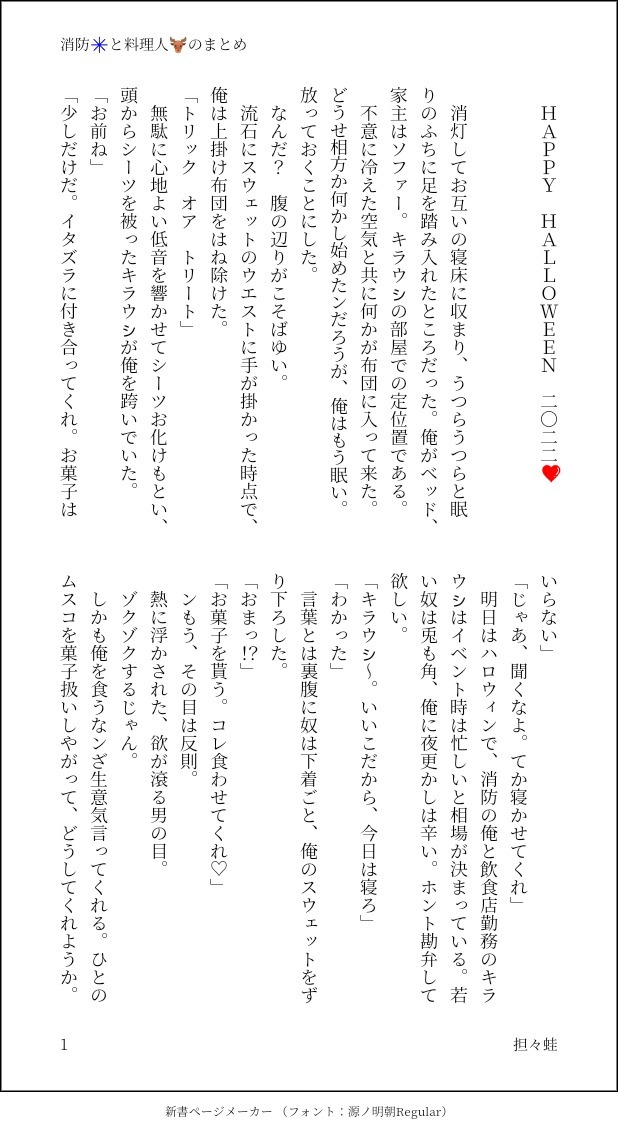 消防✳️と料理人🐂のまとめ
HAPPY HALLOWEEN 二〇二二❤️
消灯してお互いの寝床に収まり、うつらうつらと眠
りのふちに足を踏み入れたところだった。俺がベッド、
家主はソファー。キラウㇱの部屋での定位置である。
不意に冷えた空気と共に何かが布団に入って来た。
どうせ相方か何かし始めたンだろうが、俺はもう眠い。
放っておくことにした。
なんだ? 腹の辺りがこそばゆい。
流石にスウェットのウエストに手が掛かった時点で、
俺は上掛け布団をはね除けた。
「トリック オア トリート」
無駄に心地よい低音を響かせてシーツお化けもとい、
頭からシーツを被ったキラウㇱが俺を跨いでいた。
「お前ね」
「少しだけだ。イタズラに付き合ってくれ。お菓子は
いらない」
「じゃあ、聞くなよ。てか寝かせてくれ」
明日はハロウィンで、消防の俺と飲食店勤務のキラ
ウㇱはイベント時は忙しいと相場が決まっている。若
い奴は兎も角、俺に夜更かしは辛い。ホント勘弁して
欲しい。
「キラウㇱ〜。いいこだから、今日は寝ろ」
「わかった」
言葉とは裏腹に奴は下着ごと、俺のスウェットをず
り下ろした。
「おまっ!?」
「お菓子を貰う。コレ食わせてくれ♡」
ンもう、その目は反則。
熱に浮かされた、欲が滾る男の目。
ゾクゾクするじゃん。
しかも俺を食うなンざ生意気言ってくれる。ひとの
ムスコを菓子扱いしやがって、どうしてくれようか。
1
担々蛙
新書ページメーカー（フォント：源ノ明朝Regular）